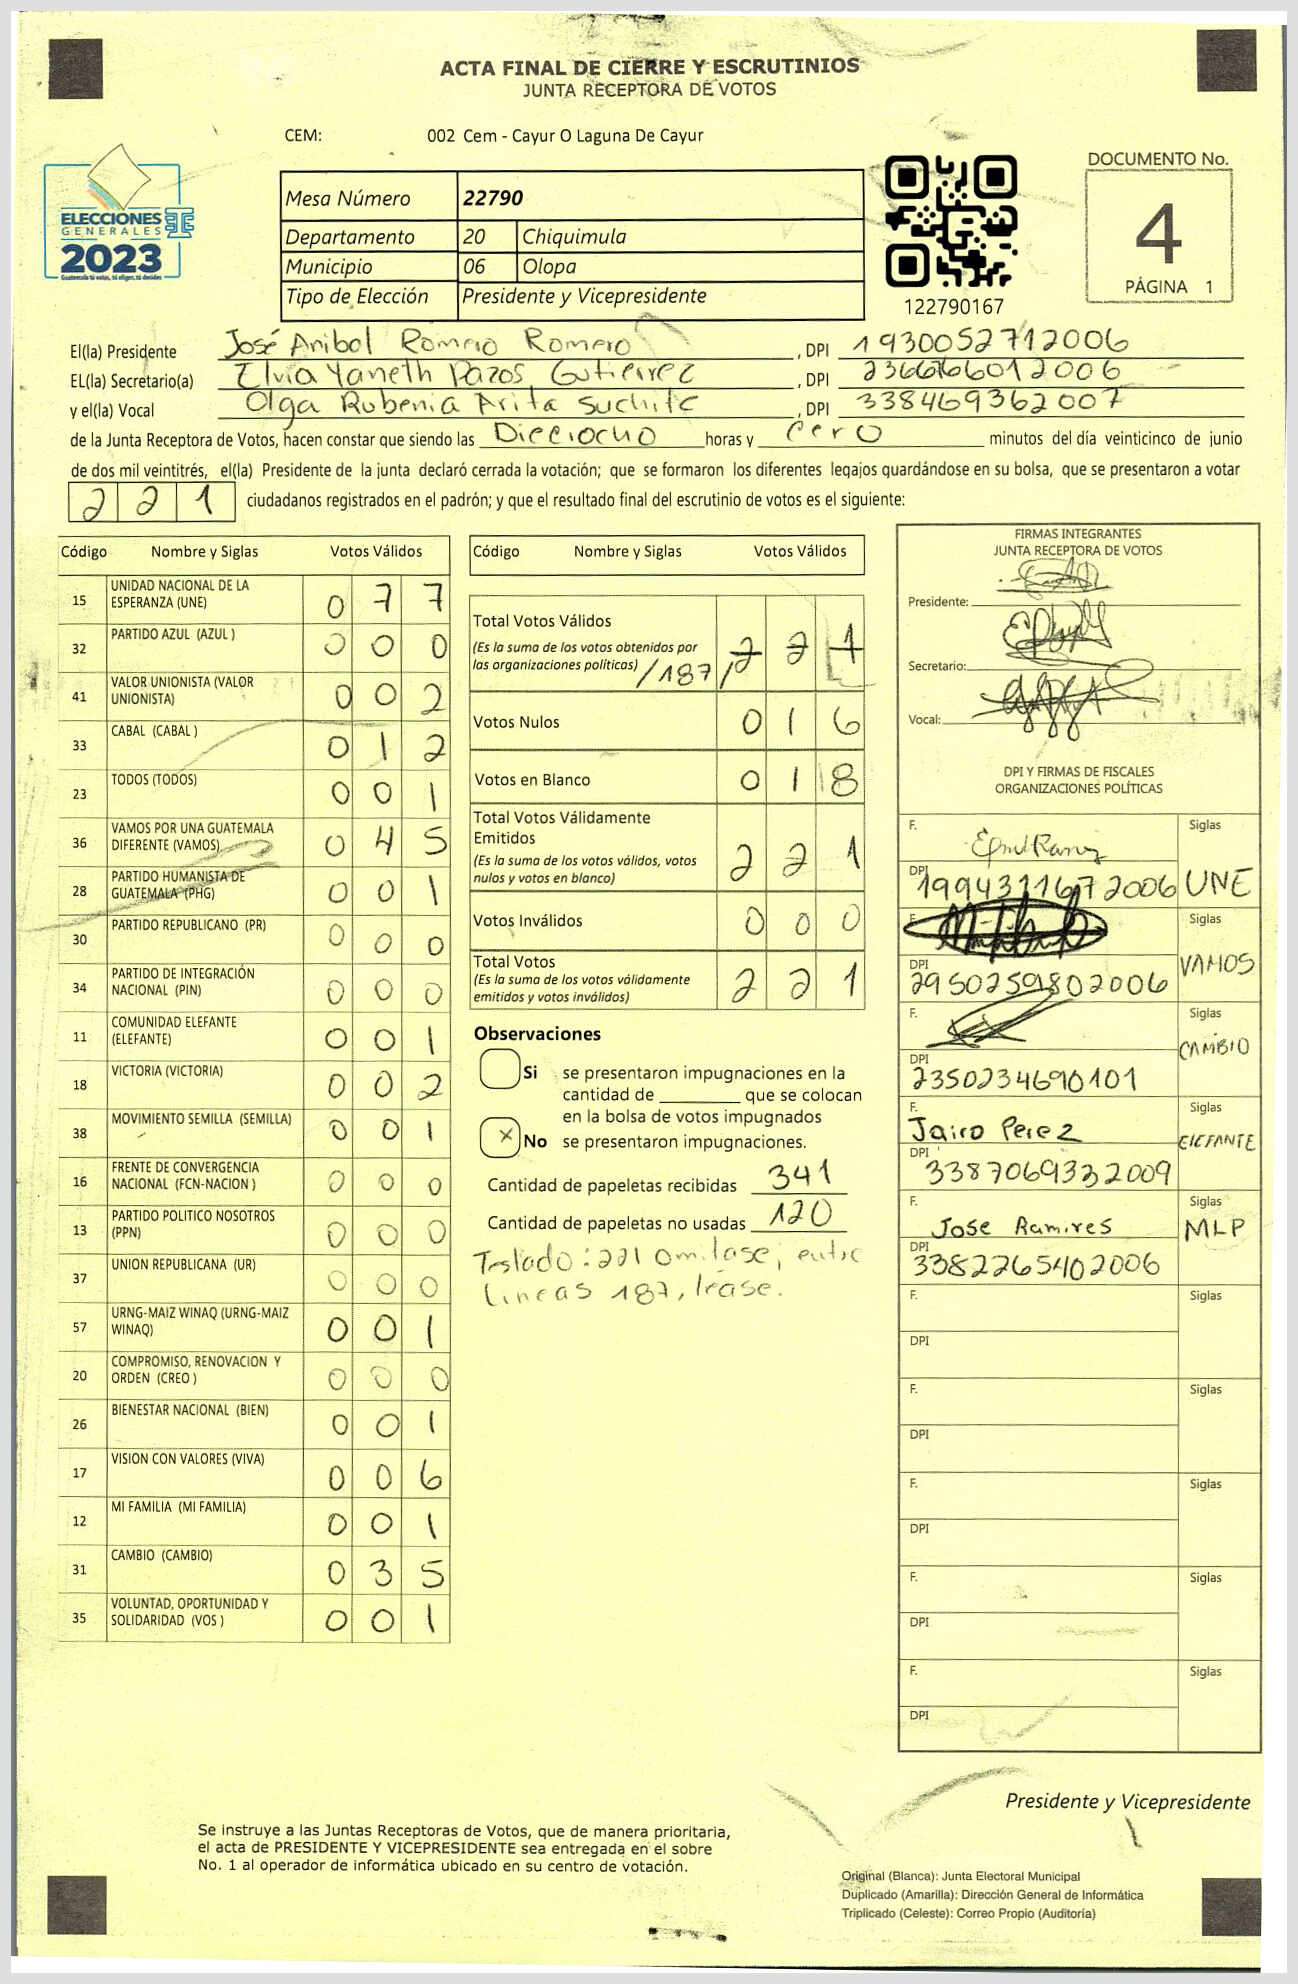 ACTA FINAL DE CIERRE Y ESCRUTINIOS
JUNTA RECEPTORA DE VOTOS
CEM: 002 Cem - Cayur O Laguna De Cayur
ELECCIONES
GENERALES
2023
Guatemala tú votas, tú eliges, tú decides
Mesa Número 22790
Departamento 20 Chiquimula
Municipio 06 Olopa
Tipo de Elección Presidente y Vicepresidente
122790167
DOCUMENTO No.
4
PÁGINA 1
El(la) Presidente José Anibal Romero Romero, DPI 1930052712006
EL(la) Secretario(a) Elvia Yaneth Pazos Gutierrez, DPI 2366766012006
y el(la) Vocal Olga Rubenia Arita Suchite, DPI 338469362007
de la Junta Receptora de Votos, hacen constar que siendo las Dieciocho horas y cero minutos del día veinticinco de junio
de dos mil veintitrés, el(la) Presidente de la junta declaró cerrada la votación; que se formaron los diferentes legajos quardándose en su bolsa, que se presentaron a votar
2 2 1 ciudadanos registrados en el padrón; y que el resultado final del escrutinio de votos es el siguiente:
Código Nombre y Siglas Votos Válidos
15 UNIDAD NACIONAL DE LA ESPERANZA (UNE) 0 7 7
32 PARTIDO AZUL (AZUL ) 0 0 0
41 VALOR UNIONISTA (VALOR UNIONISTA) 0 0 2
33 CABAL (CABAL ) 0 1 2
23 TODOS (TODOS) 0 0 1
36 VAMOS POR UNA GUATEMALA DIFERENTE (VAMOS) 0 4 5
28 PARTIDO HUMANISTA DE GUATEMALA (PHG) 0 0 1
30 PARTIDO REPUBLICANO (PR) 0 0 0
34 PARTIDO DE INTEGRACIÓN NACIONAL (PIN) 0 0 0
11 COMUNIDAD ELEFANTE (ELEFANTE) 0 0 1
18 VICTORIA (VICTORIA) 0 0 2
38 MOVIMIENTO SEMILLA (SEMILLA) 0 0 1
16 FRENTE DE CONVERGENCIA NACIONAL (FCN-NACION ) 0 0 0
13 PARTIDO POLITICO NOSOTROS (PPN) 0 0 0
37 UNION REPUBLICANA (UR) 0 0 0
57 URNG-MAIZ WINAQ (URNG-MAIZ WINAQ) 0 0 1
20 COMPROMISO, RENOVACION Y ORDEN (CREO ) 0 0 0
26 BIENESTAR NACIONAL (BIEN) 0 0 1
17 VISION CON VALORES (VIVA) 0 0 6
12 MI FAMILIA (MI FAMILIA) 0 0 1
31 CAMBIO (CAMBIO) 0 3 5
35 VOLUNTAD, OPORTUNIDAD Y SOLIDARIDAD (VOS ) 0 0 1
Código Nombre y Siglas Votos Válidos
Total Votos Válidos
(Es la suma de los votos obtenidos por
las organizaciones políticas) /187/ 2 2 1
Votos Nulos 0 1 6
Votos en Blanco 0 1 8
Total Votos Válidamente
Emitidos
(Es la suma de los votos válidos, votos
nulos y votos en blanco) 2 2 1
Votos Inválidos 0 0 0
Total Votos
(Es la suma de los votos válidamente
emitidos y votos inválidos) 2 2 1
Observaciones
Si se presentaron impugnaciones en la
cantidad de ________ que se colocan
en la bolsa de votos impugnados
X No se presentaron impugnaciones.
Cantidad de papeletas recibidas 341
Cantidad de papeletas no usadas 120
Testado: 221 omitase; entre
lineas 187, lease.
FIRMAS INTEGRANTES
JUNTA RECEPTORA DE VOTOS
Presidente:
Secretario:
Vocal:
DPI Y FIRMAS DE FISCALES
ORGANIZACIONES POLÍTICAS
F. Siglas
DPI 1994311672006 UNE
F. Siglas
DPI 2950259802006 VAMOS
F. Siglas
DPI 2350234690101 CAMBIO
F. Jairo Perez Siglas
DPI 3387069332009 ElEFANTE
F. Jose Ramires Siglas
DPI 3382265402006 MLP
F. Siglas
DPI
F. Siglas
DPI
F. Siglas
DPI
F. Siglas
DPI
F. Siglas
DPI
Presidente y Vicepresidente
Se instruye a las Juntas Receptoras de Votos, que de manera prioritaria,
el acta de PRESIDENTE Y VICEPRESIDENTE sea entregada en el sobre
No. 1 al operador de informática ubicado en su centro de votación.
Original (Blanca): Junta Electoral Municipal
Duplicado (Amarilla): Dirección General de Informática
Triplicado (Celeste): Correo Propio (Auditoría)